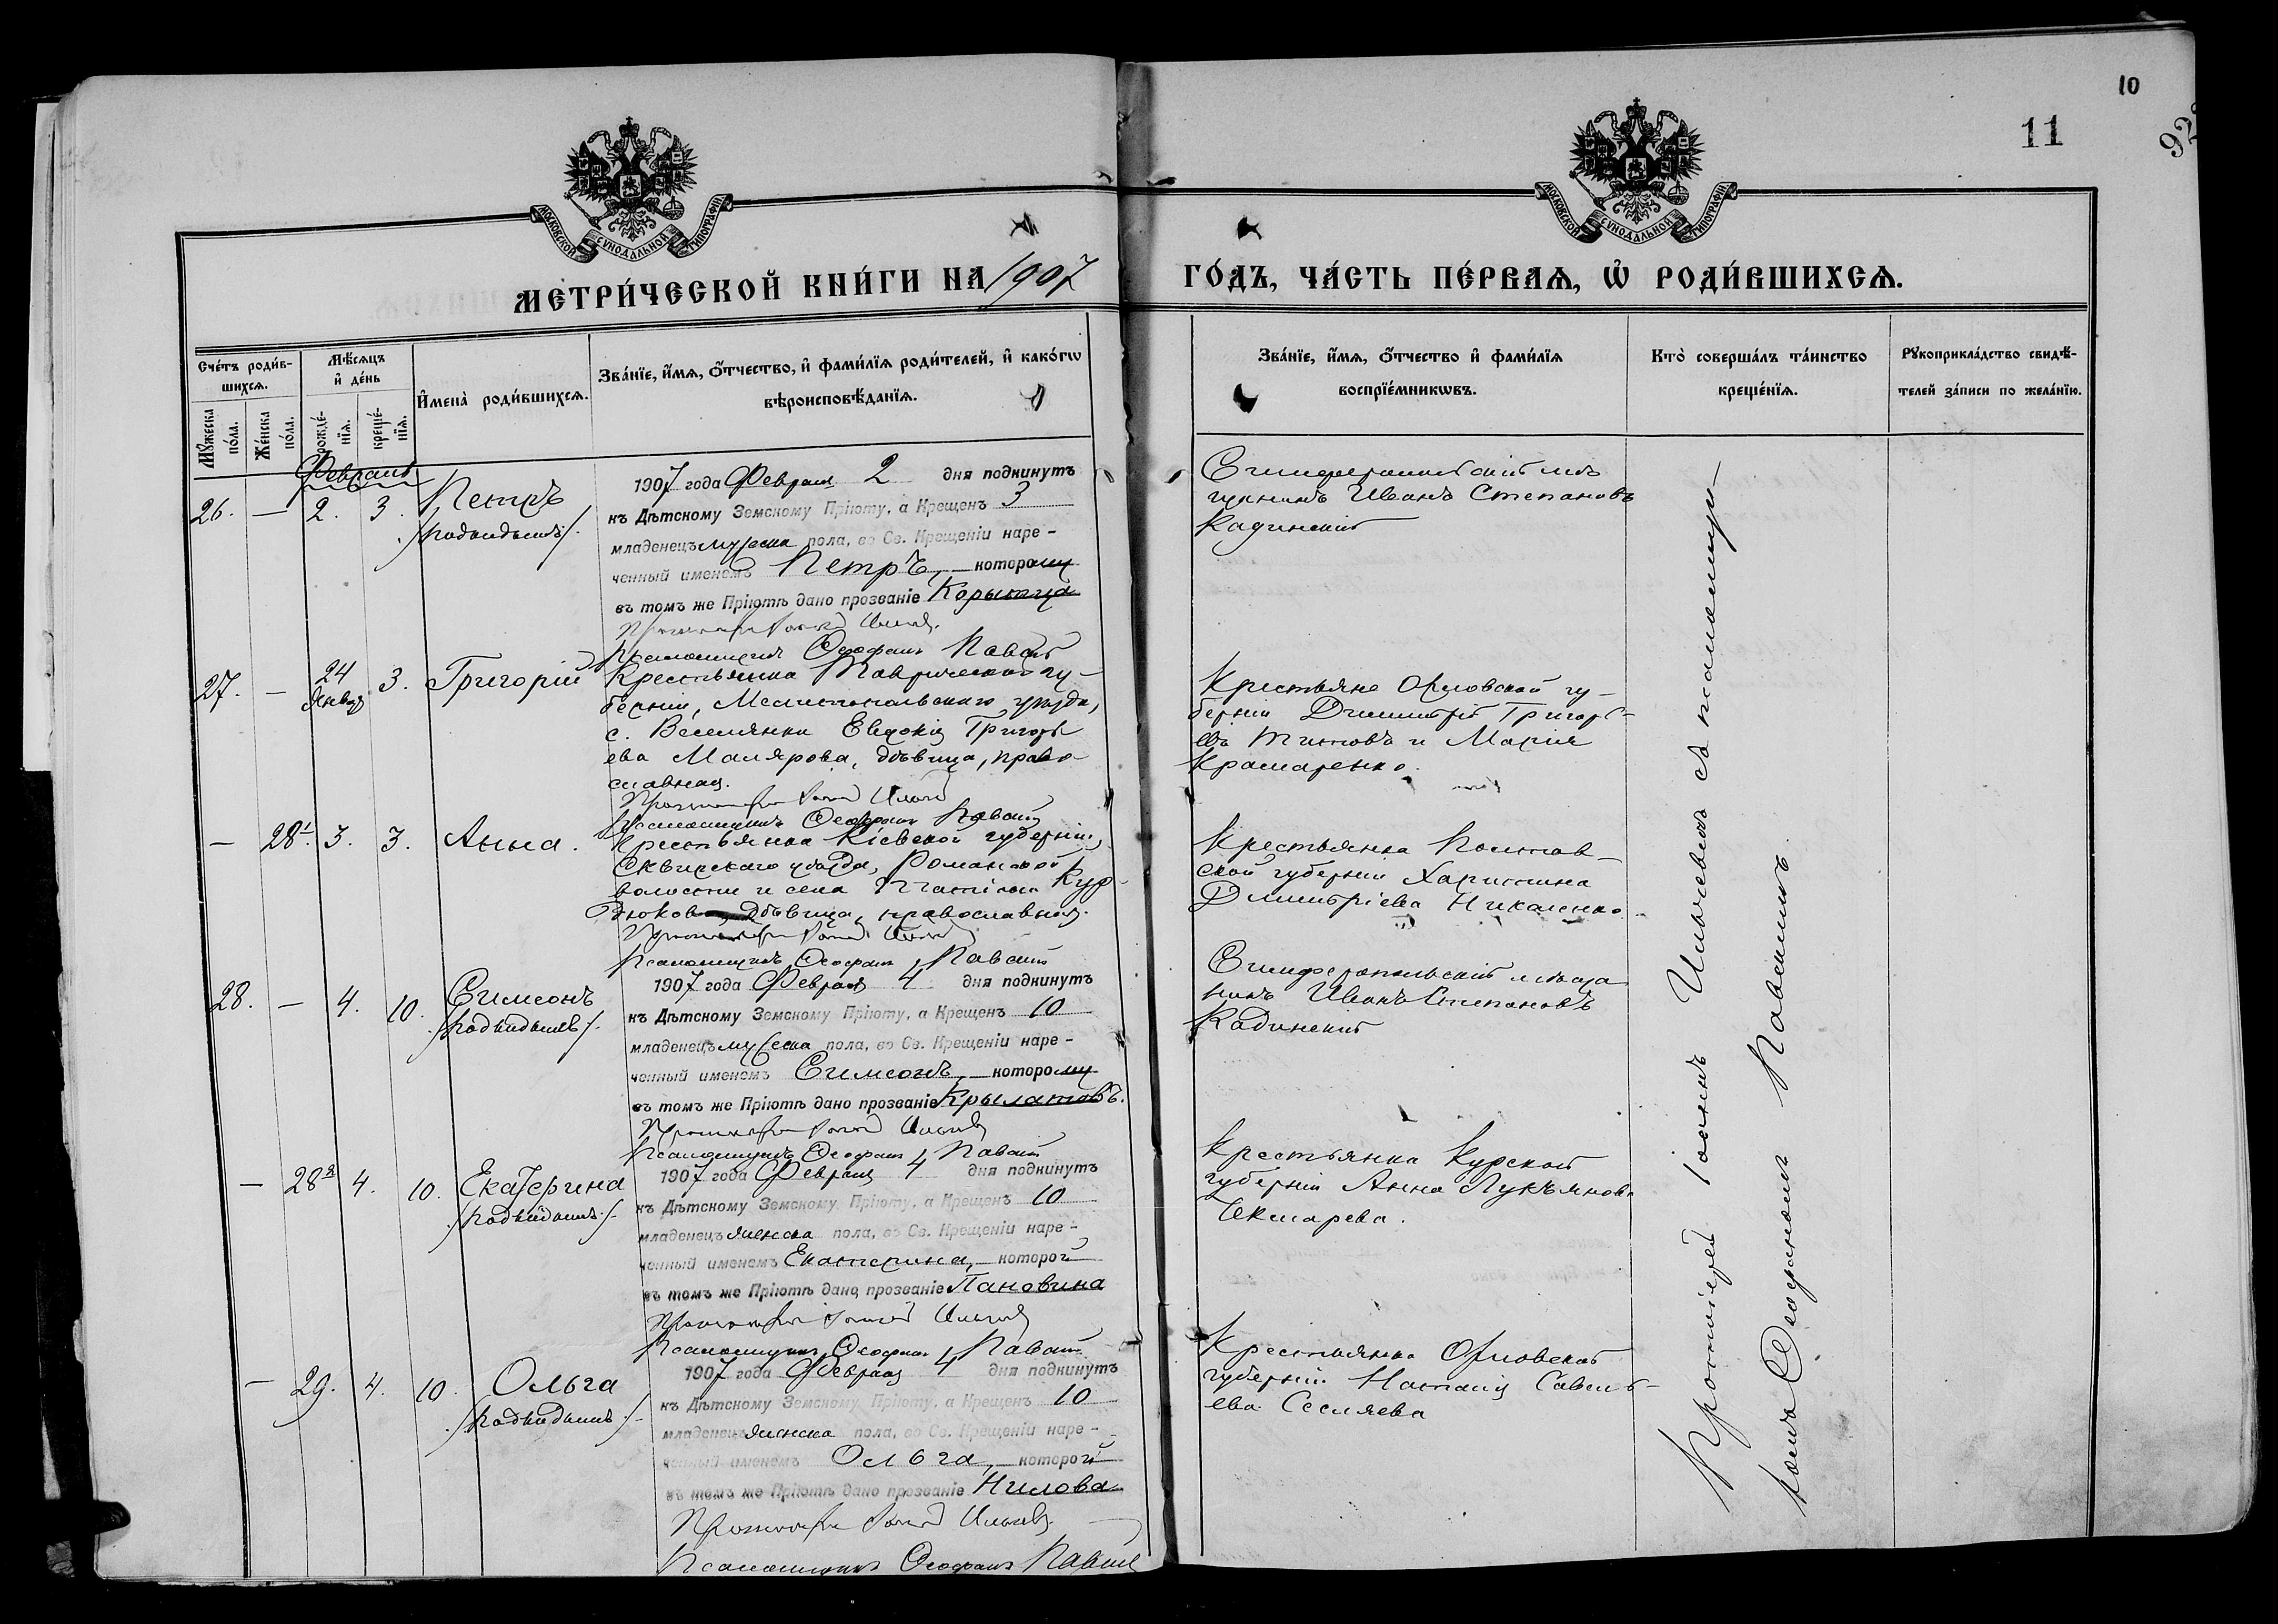 10
11
92
МОСКОВСКОЙ СѴНОДАЛЬНОЙ ТИПОГРАФІИ
МОСКОВСКОЙ СѴНОДАЛЬНОЙ ТИПОГРАФІИ
МЕТРИ́ЧЕСКОЙ КНИ́ГИ НА 1907
ГО́ДЪ, ЧА́СТЬ ПЕ́РВАѦ, Ѡ҆ РОДИ́ВШИХСѦ.
Сче́тъ роди́в-
шихсѧ.
Мꙋжеска
по́ла.
Же́нска
по́ла.
Мѣ́сѧцъ
и҆ де́нь
рожде́-
нїѧ.
креще́-
нїѧ.
И҆мена̀ роди́вшихсѧ.
Зва́нїе, и҆́мѧ, ѻ҆́тчество, и҆ фами́лїѧ роди́телей, и҆ како́гѡ
вѣроисповѣ́данїѧ.
Зва́нїе, и҆́мѧ, ѻ҆́тчество и҆ фами́лїѧ
воспрїе́мникѡвъ.
Кто̀ соверша́лъ та́инство
креще́нїѧ.
Рꙋкоприкла́дство свидѣ́-
телей за́писи по жела́нїю.
Февраль
26. — 2. 3. Петръ
/подкидышъ/.
1907 года Февраля 2 дня подкинутъ
къ Дѣтскому Земскому Пріюту, а Крещенъ 3
младенецъ мужеска пола, во Св. Крещеніи наре-
ченный именемъ Петръ, которому
въ томъ же Пріютѣ дано прозваніе Корытца
Протоіерей Іоаннъ Ильичевъ
Псаломщикъ Ѳеофанъ Павскій
Симферопольскій мѣ
щанинъ Иванъ Степановъ
Кадинскій
27. — 24 Январ 3. Григорій
Крестьянка Таврической гу-
берніи, Мелитопольскаго уѣзда,
с. Веселянки Евдокія Григорь
ева Малярова, дѣвица, право
славная.
Протоіерей Іоаннъ Ильичевъ
Псаломщикъ Ѳеофанъ Павскій
Крестьяне Орловской гу-
берніи Димитрій Григорь-
евъ Титовъ и Марія
Крамаренко.
— 28¹. 3. 3. Анна.
Крестьянка Кіевской губерніи,
Сквирскаго уѣзда, Романской
волости и села Татіана Кур-
дюкова, дѣвица, православная.
Протоіерей Іоаннъ Ильичевъ
Псаломщикъ Ѳеофанъ Павскій
Крестьянка Полтав-
ской губерніи Харитина
Димитріева Николенко.
28. — 4. 10. Симеонъ
/подкидышъ/.
1907 года Февраля 4 дня подкинутъ
къ Дѣтскому Земскому Пріюту, а Крещенъ 10
младенецъ мужеска пола, во Св. Крещеніи наре-
ченный именемъ Симеонъ, которому
въ томъ же Пріютѣ дано прозваніе Крылатовъ.
Протоіерей Іоаннъ Ильичевъ
Псаломщикъ Ѳеофанъ Павскій
Симферопольскій мѣща
нинъ Иванъ Степановъ
Кадинскій
— 28² 4. 10. Екатерина
/подкидышъ/.
1907 года Февраля 4 дня подкинутъ
къ Дѣтскому Земскому Пріюту, а Крещенъ 10
младенецъ женска пола, во Св. Крещеніи наре-
ченный именемъ Екатерина, которой
въ томъ же Пріютѣ дано прозваніе Пановина
Протоіерей Іоаннъ Ильичевъ
Псаломщикъ Ѳеофанъ Павскій
Крестьянка Курской
губерніи Анна Лукьянова
— 29. 4. 10. Ольга
/подкидышъ/.
1907 года Февраля 4 дня подкинутъ
къ Дѣтскому Земскому Пріюту, а Крещенъ 10
младенецъ женска пола, во Св. Крещеніи наре-
ченный именемъ Ольга, которой
въ томъ же Пріютѣ дано прозваніе Нилова
Протоіерей Іоаннъ Ильичевъ
Псаломщикъ Ѳеофанъ Павскій
Крестьянка Орловской
губерніи Наталія Савель-
ева Сесляева
Протоіерей Іоаннъ Ильичевъ съ псаломщи-
комъ Ѳеофаномъ Павскимъ.